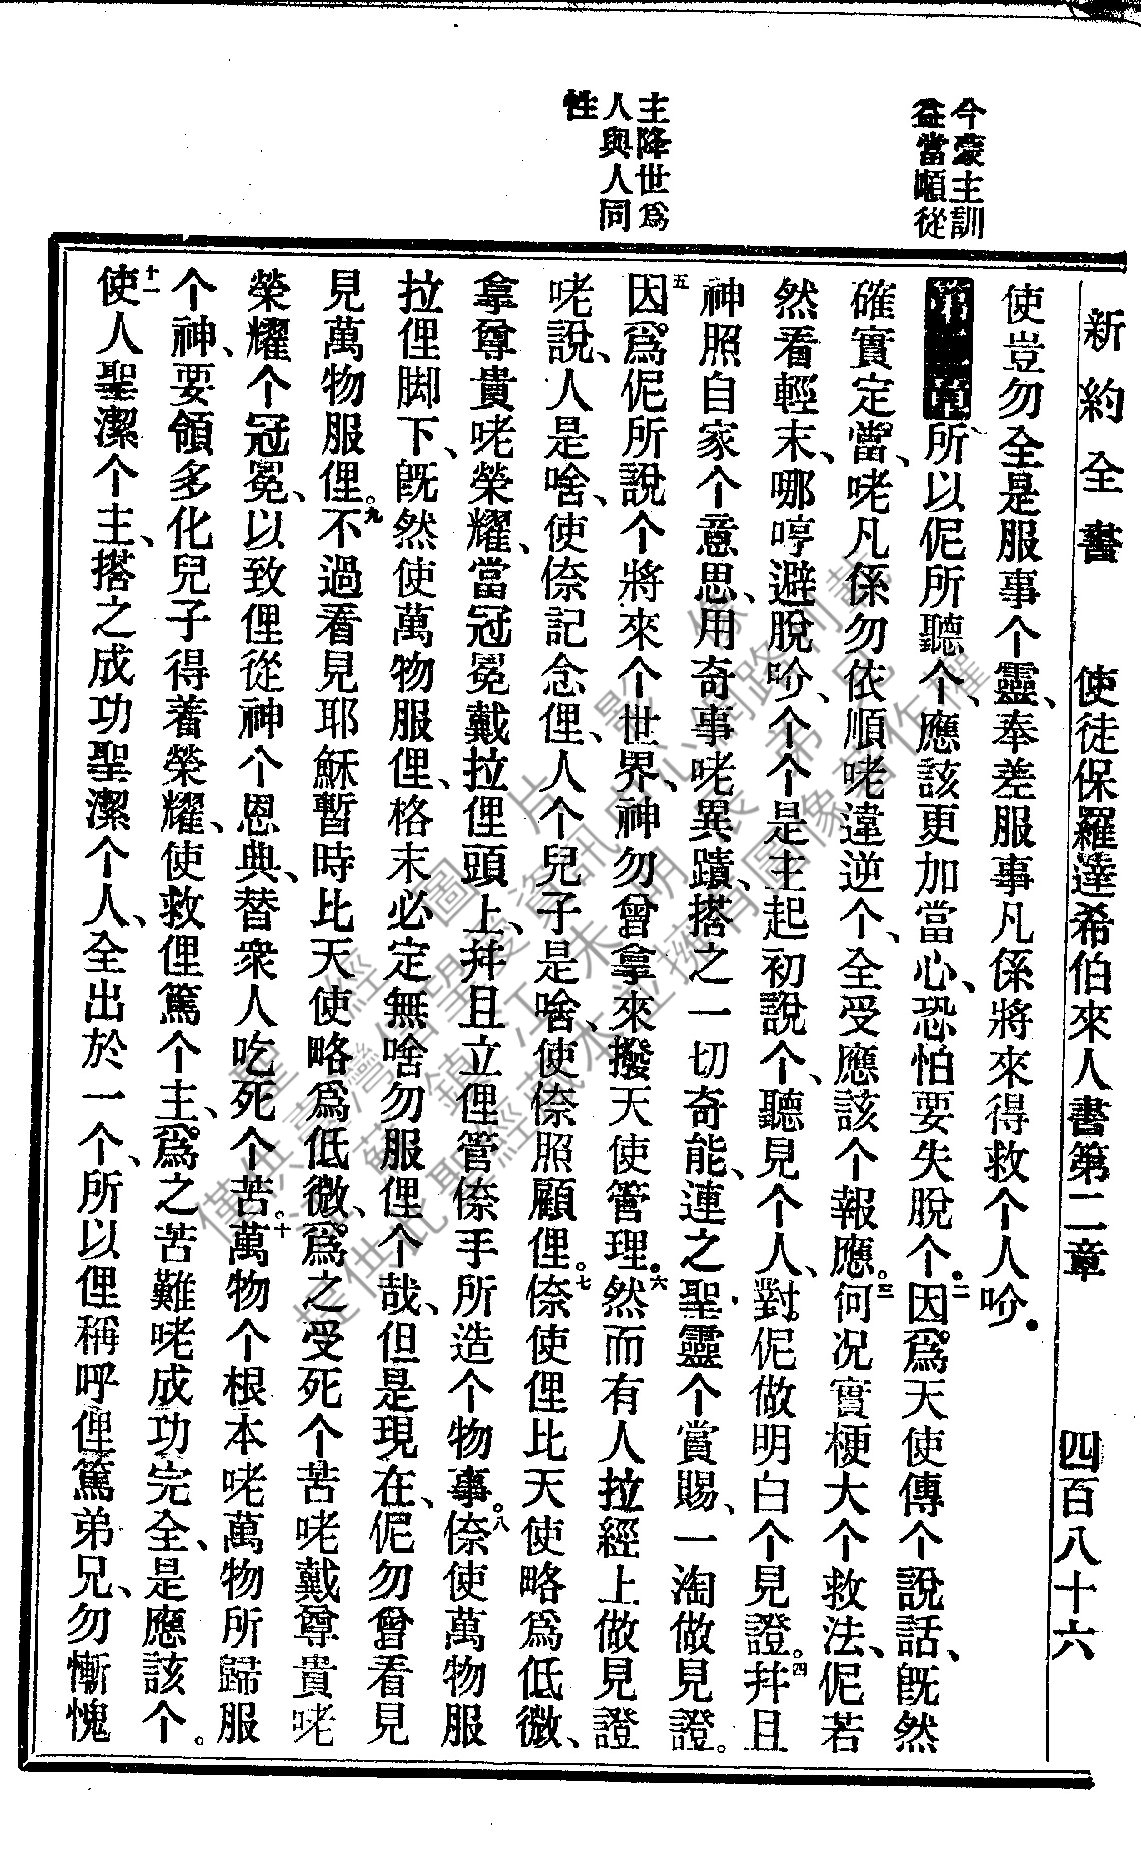 新約全書 使徒保羅達希伯來人書第二章 四百八十六
今蒙主訓
益當順從
主降世爲
人與人同
性
使豈勿全是服事个靈、奉差服事凡係將來得救个人吤。
第二章所以伲所聽个、應該更加當心、恐怕要失脫个。二因爲天使傳个說話、旣然
確實定當、咾凡係勿依順咾違逆个、全受應該个報應。三何況實梗大个救法、伲若
然看輕末、哪哼避脫吤、个个是主起初說个、聽見个人、對伲做明白个見證。四幷且
神照自家个意思、用奇事咾異蹟、搭之一切奇能、連之聖靈个賞賜、一淘做見證。
五因爲伲所說个將來个世界、神勿曾拿來撥天使管理。六然而有人拉經上做見證
咾說、人是啥、使倷記念俚、人个兒子是啥、使倷照顧俚。七倷使俚比天使略爲低微、
拿尊貴咾榮耀、當冠冕戴拉俚頭上、幷且立俚管倷手所造个物事。八倷使萬物服
拉俚脚下、旣然使萬物服俚、格末必定無啥勿服俚个哉、但是現在、伲勿曾看見
見萬物服俚。九不過看見耶穌暫時比天使略爲低微、爲之受死个苦咾戴尊貴咾
榮耀个冠冕、以致俚從神个恩典、替衆人吃死个苦。十萬物个根本咾萬物所歸服
个神、要領多化兒子得着榮耀、使救俚篤个主、爲之苦難咾成功完全、是應該个。
十一使人聖潔个主、搭之成功聖潔个人、全出於一个、所以俚稱呼俚篤弟兄、勿慚愧